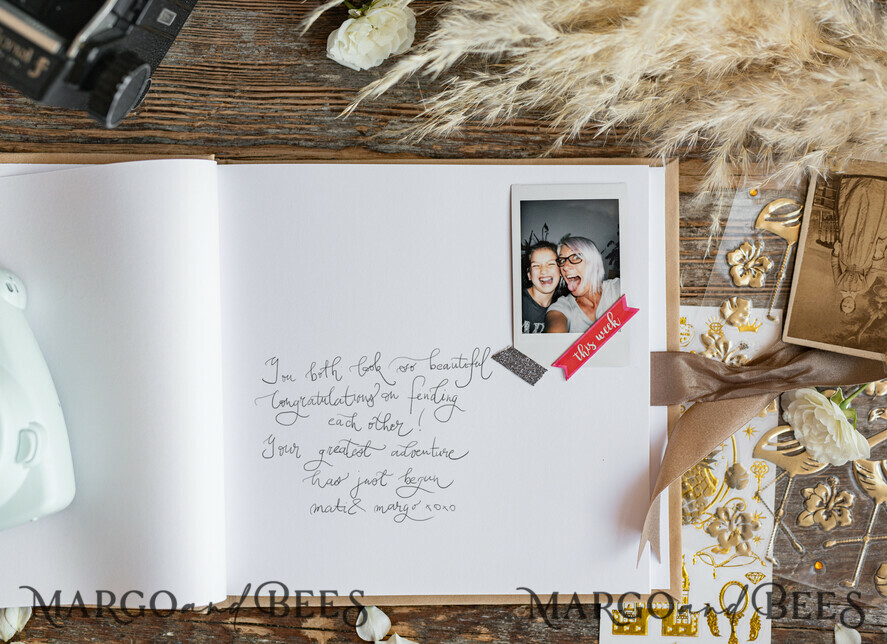 this week
You both look so beautiful
Congratulations on fending
each other!
Your greatest adventure
has just begun
mati & margo xoxo
MARGO and BEES MARGO and BEES